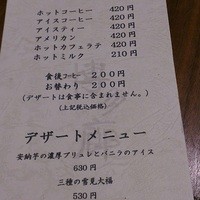 ホットコーヒー 420円
アイスコーヒー 420円
アイスティー 420円
アメリカン 420円
ホットカフェラテ 420円
ホットミルク 210円
食後コーヒー 200円
お替わり 200円
(デザートは食事に含まれません。)
(上記税込価格)
デザートメニュー
安納芋の濃厚ブリュレとバニラのアイス
630円
三種の雪見大福
530円